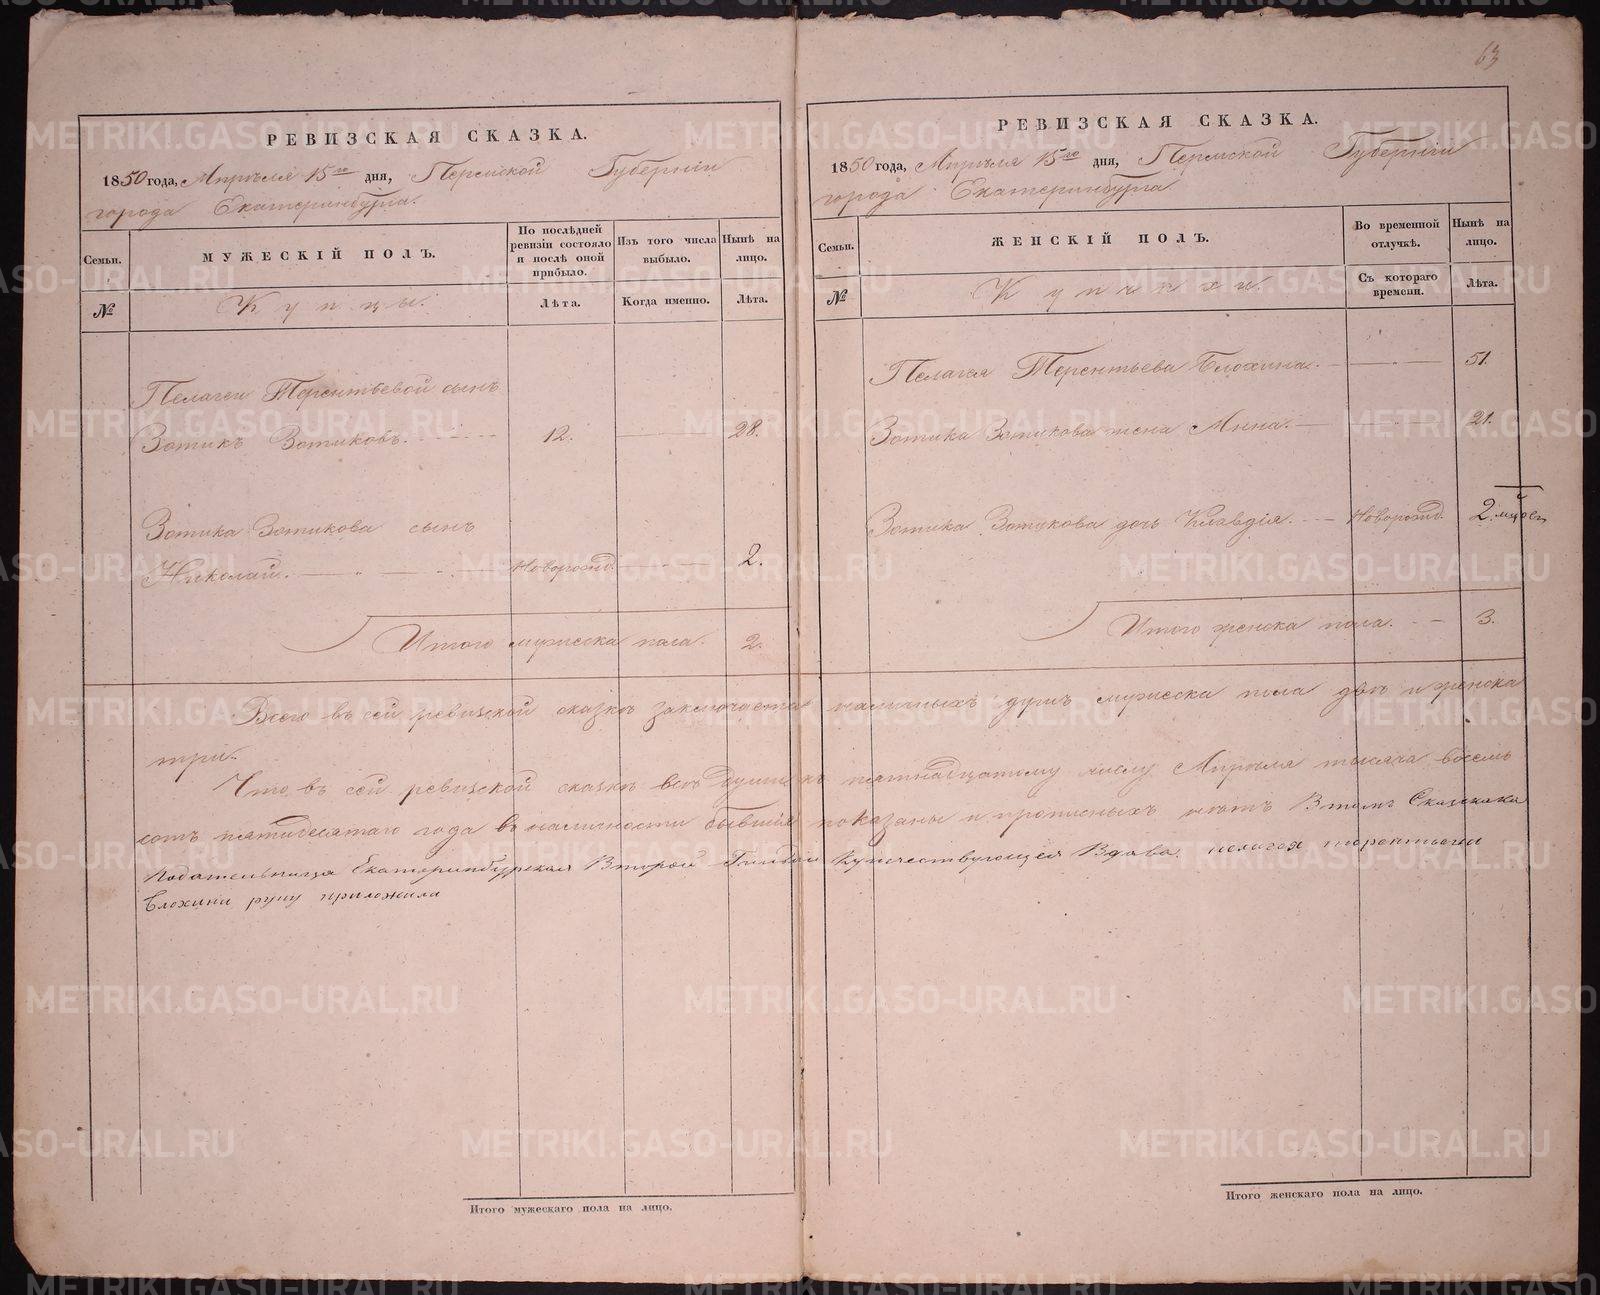 63
РЕВИЗСКАЯ СКАЗКА.
1850 года, Апрѣля 15го дня, Пермской Губерніи
города Екатеринбурга.
Семьи.
МУЖЕСКІЙ ПОЛЪ.
По послѣдней ревизіи состояло и послѣ оной прибыло.
Изъ того числа выбыло.
Нынѣ на лицо.
№
Купцы.
Лѣта.
Когда именно.
Лѣта.
Пелагеи Терентьевой сынъ
Зотикъ Зотиковъ. 12. 28.
Зотика Зотикова сынъ
Николай. Новорожд. 2.
Итого мужеска пола. 2.
РЕВИЗСКАЯ СКАЗКА.
1850 года, Апрѣля 15го дня, Пермской Губерніи
города Екатеринбурга
Семьи.
ЖЕНСКІЙ ПОЛЪ.
Во временной отлучкѣ.
Нынѣ на лицо.
№
Купчихи.
Съ котораго времени.
Лѣта.
Пелагея Терентьева Блохина. 51.
Зотика Зотикова жена Анна. 21.
Зотика Зотикова дочь Клавдія. Новорожд. 2.
Итого женска пола. 3.
Всего въ сей ревизской сказкѣ заключается наличныхъ душъ мужеска пола двѣ и женска
три.
Что въ сей ревизской сказкѣ всѣ души къ пятнадцатому числу Апрѣля тысяча восемь
сотъ пятидесятаго года въ наличности бывшія показаны и прописныхъ нѣтъ Втомъ Сказскака
Подательница Екатеринбурская Второй Гилдіи Купечествующея Вдова пелагея терентьева
Блохина руку приложила
Итого мужескаго пола на лицо.
Итого женскаго пола на лицо.
METRIKI.GASO-URAL.RU